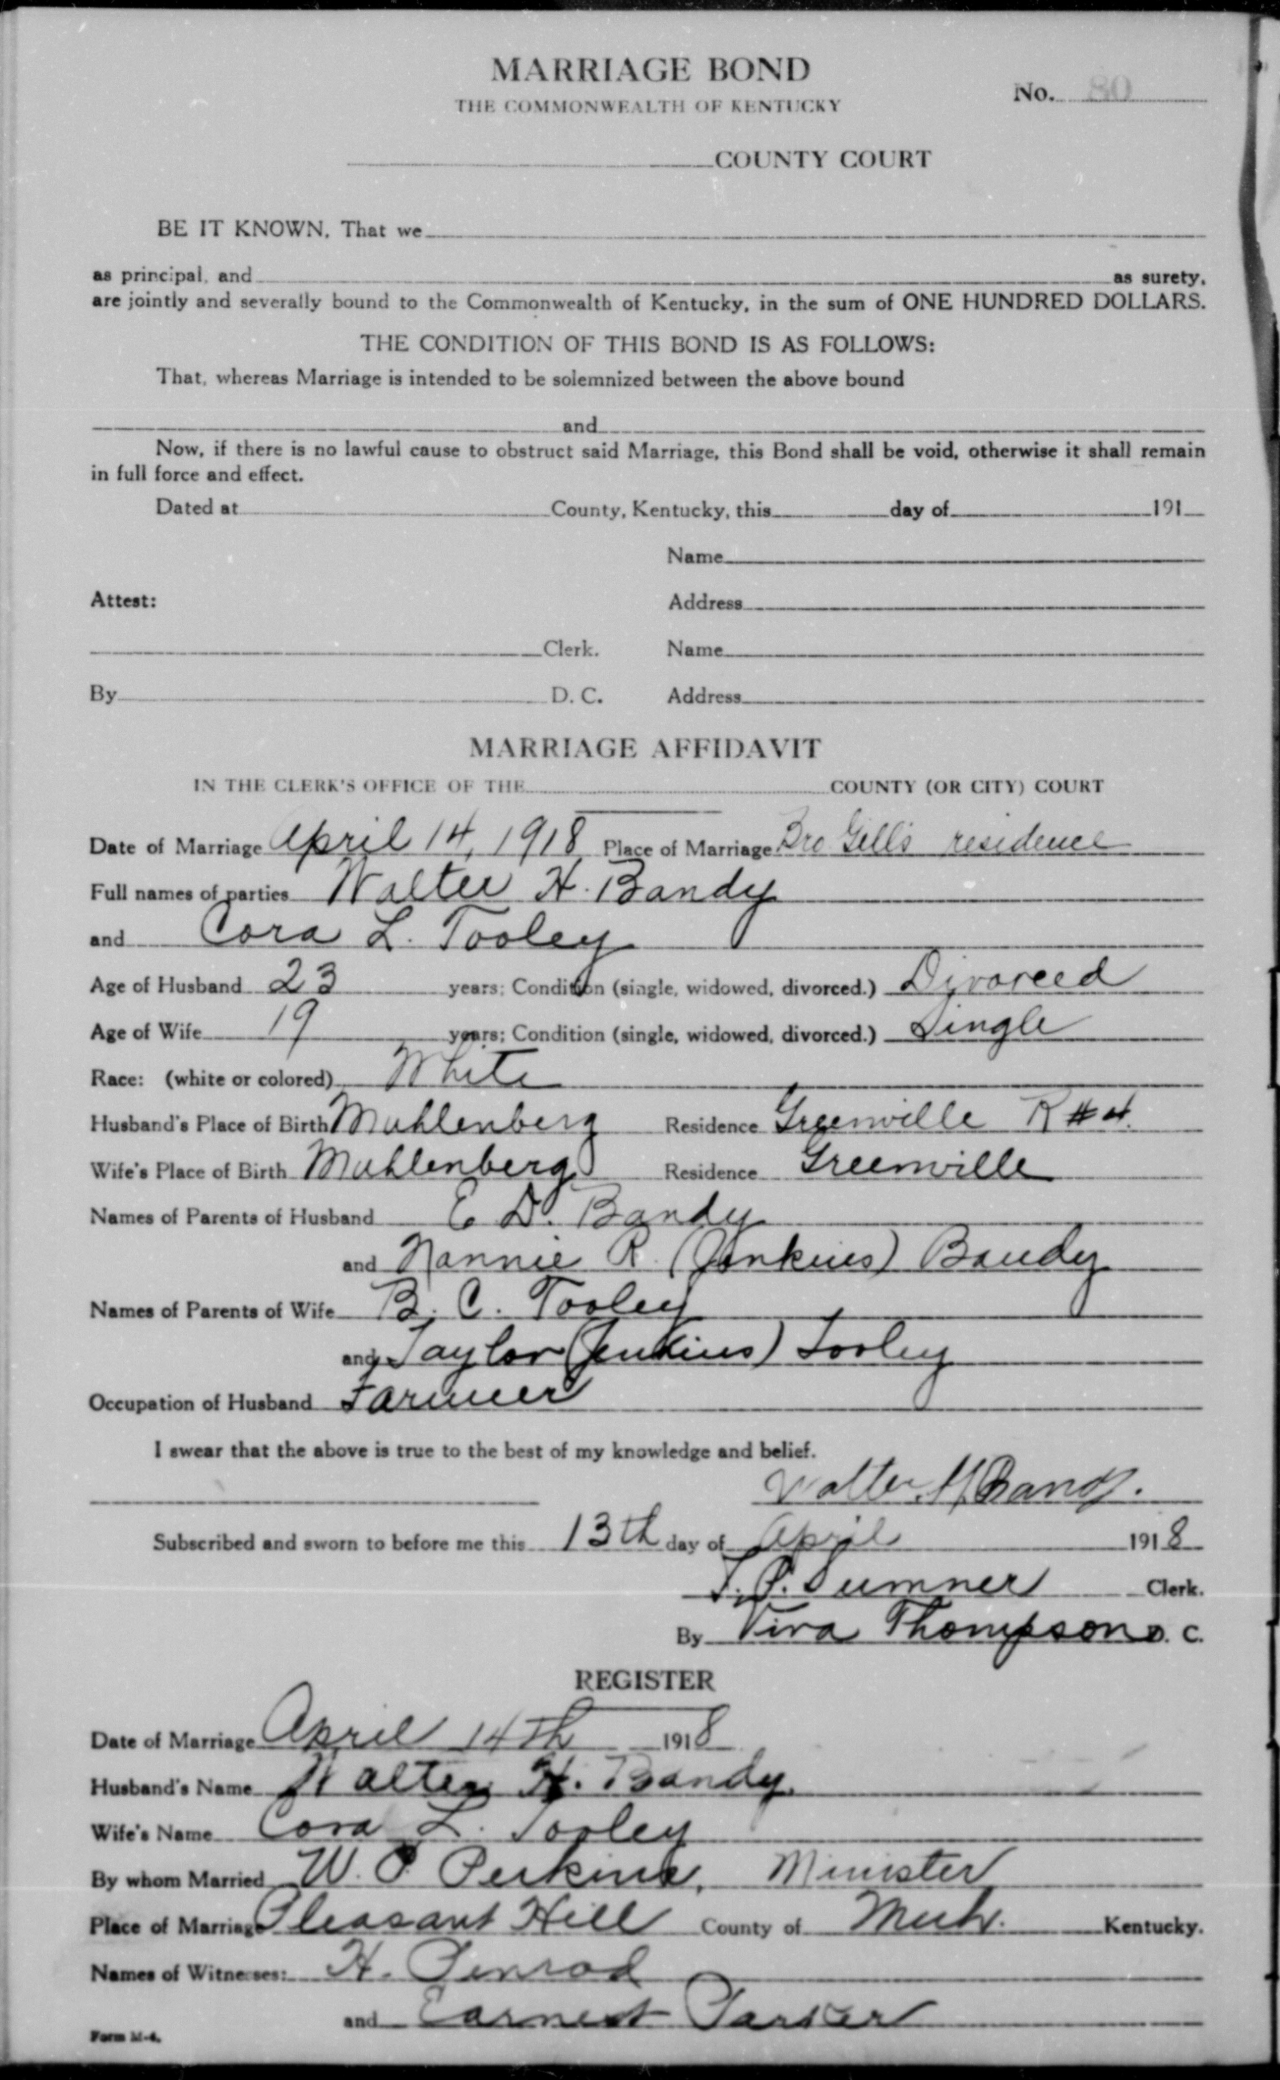 MARRIAGE BOND
No. 80
THE COMMONWEALTH OF KENTUCKY
COUNTY COURT
BE IT KNOWN, That we
as principal, and as surety,
are jointly and severally bound to the Commonwealth of Kentucky, in the sum of ONE HUNDRED DOLLARS.
THE CONDITION OF THIS BOND IS AS FOLLOWS:
That, whereas Marriage is intended to be solemnized between the above bound
and
Now, if there is no lawful cause to obstruct said Marriage, this Bond shall be void, otherwise it shall remain
in full force and effect.
Dated at County, Kentucky, this day of 191
Name
Attest: Address
Clerk. Name
By D. C. Address
MARRIAGE AFFIDAVIT
IN THE CLERK'S OFFICE OF THE COUNTY (OR CITY) COURT
Date of Marriage April 14, 1918 Place of Marriage Bro Gill's residence
Full names of parties Walter H. Bandy
and Cora L. Tooley
Age of Husband 23 years; Condition (single, widowed, divorced.) Divorced
Age of Wife 19 years; Condition (single, widowed, divorced.) Single
Race: (white or colored) White
Husband's Place of Birth Muhlenberg Residence Greenville R#4.
Wife's Place of Birth Muhlenberg Residence Greenville
Names of Parents of Husband E D. Bandy
and Nannie R. (Jenkins) Bandy
Names of Parents of Wife B. C. Tooley
and Taylor (Jenkins) Tooley
Occupation of Husband Farmer
I swear that the above is true to the best of my knowledge and belief.
Walter H Bandy.
Subscribed and sworn to before me this 13th day of April 1918
T. P. Sumner Clerk.
By Viva Thompson D. C.
REGISTER
Date of Marriage April 14th 1918
Husband's Name Walter H. Bandy
Wife's Name Cora L. Tooley
By whom Married W. P. Perkins, Minister
Place of Marriage Pleasant Hill County of Muh. Kentucky.
Names of Witnesses: H. Penrod
and Earnest Parker
Form M-4.